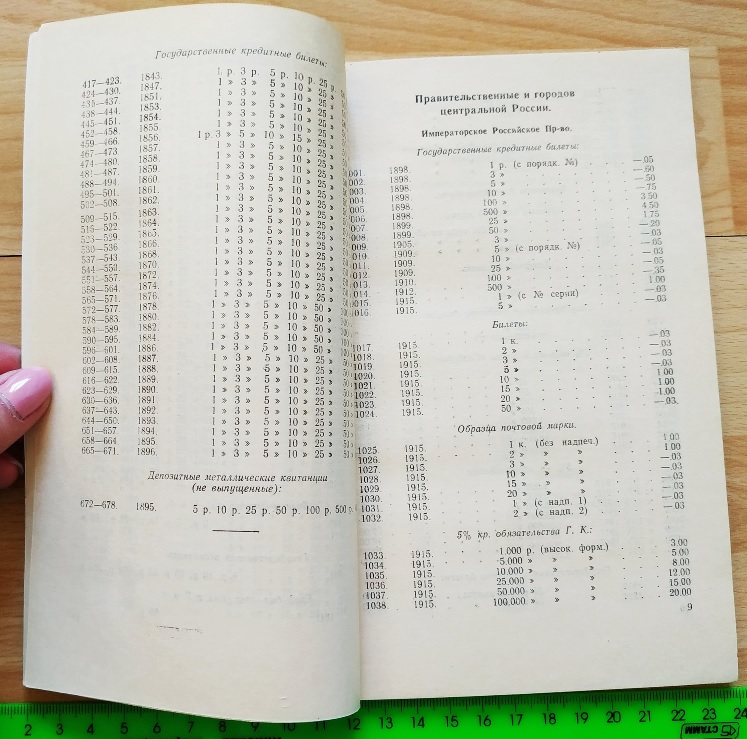 Государственные кредитные билеты:
417—423. 1843. 1 р. 3 р. 5 р. 10 р. 25 р.
424—430. 1847. 1 » 3 » 5 » 10 » 25
431—437. 1851. 1 » 3 » 5 » 10 » 25
438—444. 1853. 1 » 3 » 5 » 10 » 25
445—451. 1854. 1 » 3 » 5 » 10 » 25
452—458. 1855. 1 » 3 » 5 » 10 » 25
459—466. 1856. 1 р. 3 » 5 » 10 » 15 » 25
467—473. 1857. 1 » 3 » 5 » 10 » 25
474—480. 1858. 1 » 3 » 5 » 10 » 25
481—487. 1859. 1 » 3 » 5 » 10 » 25
488—494. 1860. 1 » 3 » 5 » 10 » 25
495—501. 1861. 1 » 3 » 5 » 10 » 25
502—508. 1862. 1 » 3 » 5 » 10 » 25
509—515. 1863. 1 » 3 » 5 » 10 » 25
516—522. 1864. 1 » 3 » 5 » 10 » 25
523—529. 1865. 1 » 3 » 5 » 10 » 25
530—536. 1866. 1 » 3 » 5 » 10 » 25
537—543. 1868. 1 » 3 » 5 » 10 » 25
544—550. 1870. 1 » 3 » 5 » 10 » 25
551—557. 1872. 1 » 3 » 5 » 10 » 25
558—564. 1874. 1 » 3 » 5 » 10 » 25
565—571. 1876. 1 » 3 » 5 » 10 » 25
572—577. 1878. 1 » 3 » 5 » 10 » 50
578—583. 1880. 1 » 3 » 5 » 10 » 50
584—589. 1882. 1 » 3 » 5 » 10 » 50
590—595. 1884. 1 » 3 » 5 » 10 » 50
596—601. 1886. 1 » 3 » 5 » 10 » 50
602—608. 1887. 1 » 3 » 5 » 10 » 25
609—615. 1888. 1 » 3 » 5 » 10 » 25
616—622. 1889. 1 » 3 » 5 » 10 » 25
623—629. 1890. 1 » 3 » 5 » 10 » 25
630—636. 1891. 1 » 3 » 5 » 10 » 25
637—643. 1892. 1 » 3 » 5 » 10 » 25
644—650. 1893. 1 » 3 » 5 » 10 » 25
651—657. 1894. 1 » 3 » 5 » 10 » 25
658—664. 1895. 1 » 3 » 5 » 10 » 25
665—671. 1896. 1 » 3 » 5 » 10 » 25
Депозитные металлические квитанции
(не выпущенные):
672—678. 1895. 5 р. 10 р. 25 р. 50 р. 100 р. 500 р.
Правительственные и городов
центральной России.
Императорское Российское Пр-во.
Государственные кредитные билеты:
001. 1898. 1 р. (с порядк. №) —.05
002. 1898. 3 » —.60
003. 1898. 5 » —.50
004. 1898. 10 » —.75
005. 1898. 100 » 3.50
006. 1898. 500 » 4.50
007. 1899. 25 » 1.75
008. 1899. 50 » —.20
009. 1905. 3 » —.03
1010. 1909. 5 » (с порядк. №) —.05
1011. 1909. 10 » —.03
1012. 1909. 25 » —.05
1013. 1910. 100 » —.35
1014. 1912. 500 » 1.00
1015. 1915. 1 » (с № серии) —.03
1016. 1915. 5 » —.03
Билеты:
1017. 1915. 1 к. —.03
1018. 1915. 2 » —.03
1019. 1915. 3 » —.03
1020. 1915. 5 » —.03
1021. 1915. 10 » 1.00
1022. 1915. 15 » 1.00
1023. 1915. 20 » 1.00
1024. 1915. 50 » —.03.
Образца почтовой марки.
1025. 1915. 1 к. (без надпеч.) 1.00
1026. 1915. 2 » » » 1.00
1027. 1915. 3 » » » —.03
1028. 1915. 10 » » » —.03
1029. 1915. 15 » » » —.03
1030. 1915. 20 » » » —.03
1031. 1915. 1 » (с надп. 1) —.03
1032. 1915. 2 » (с надп. 2) —.03
5% кр. обязательства Г. К.:
1033. 1915. 1.000 р. (высок. форм.) 3.00
1034. 1915. 5.000 » » » 5.00
1035. 1915. 10.000 » » » 8.00
1036. 1915. 25.000 » » » 12.00
1037. 1915. 50.000 » » » 15.00
1038. 1915. 100.000 » » » 20.00
9
2 3 4 5 6 7 8 9 10 11 12 13 14 15 16 17 18 19 20 21 22 23 24
СТАММ